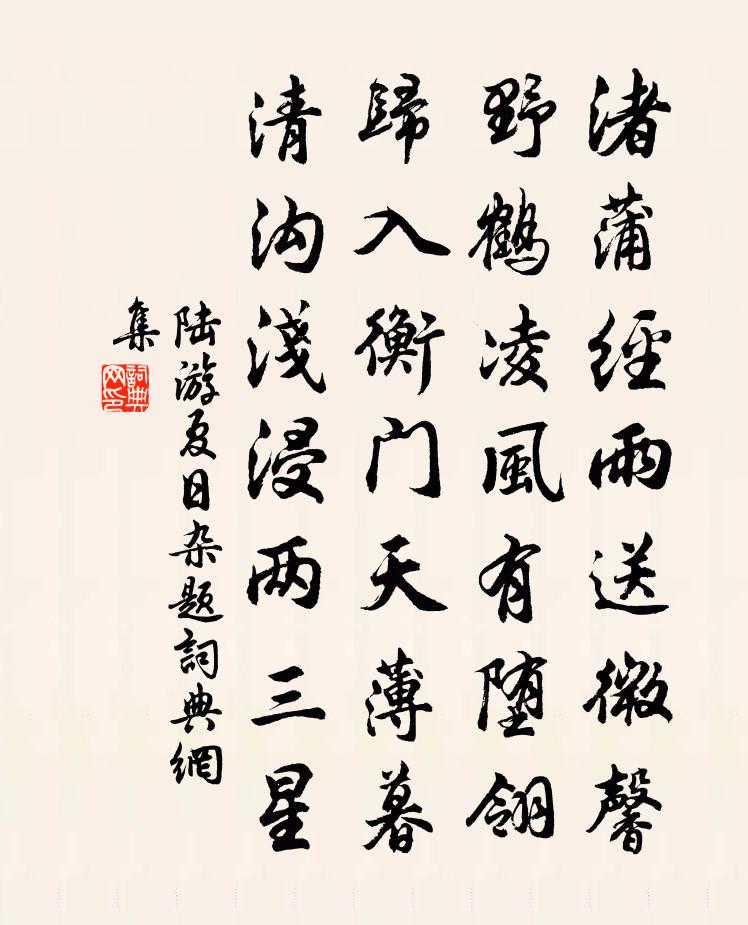 渚蒲經雨送微馨
野鶴凌風有堕翎
歸入衡門天薄暮
清沟淺浸两三星
陆游夏日杂题詞典網
集
詞典
网印